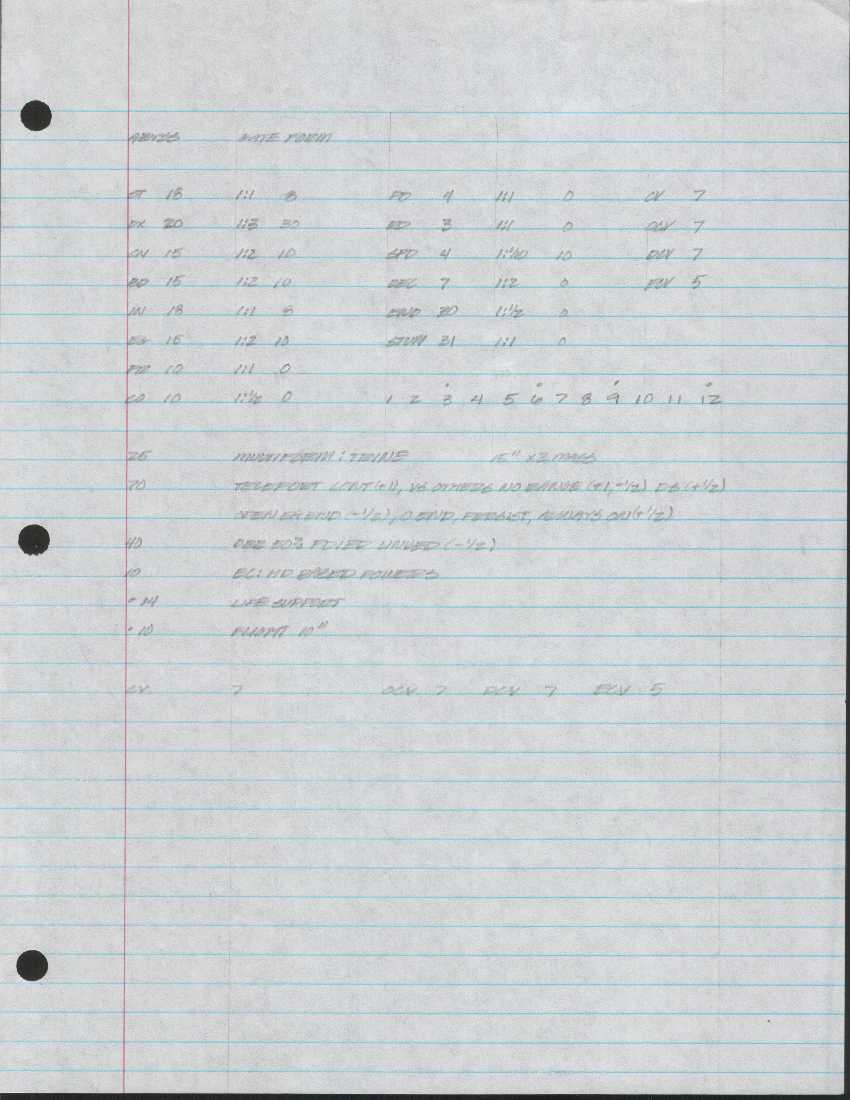 ABYSS GATE FORM
ST 18 1:1 8 PD 4 1:1 0 CV 7
DX 20 1:3 30 ED 3 1:1 0 OCV 7
CN 15 1:2 10 SPD 4 1:1/10 10 DCV 7
BD 15 1:2 10 REC 7 1:2 0 ECV 5
IN 18 1:1 8 END 30 1:1/2 0
EG 15 1:2 10 STUN 31 1:1 0
PR 10 1:1 0
CO 10 1:1/2 0 1 2 3 4 5 6 7 8 9 10 11 12
25 MULTIFORM: TRINE 15" X2 MASS
70 TELEPORT CONT(+1), VS OTHERS NO RANGE (+1, -1/2) DS (+1/2)
0 END, PERSIST, ALWAYS ON(+1/2)
40 DEF LINKED (-1/2)
10 EC: HD BASED POWERS
• 14 LIFE SUPPORT
• 10 FLIGHT 10"
CV 7 OCV 7 DCV 7 ECV 5